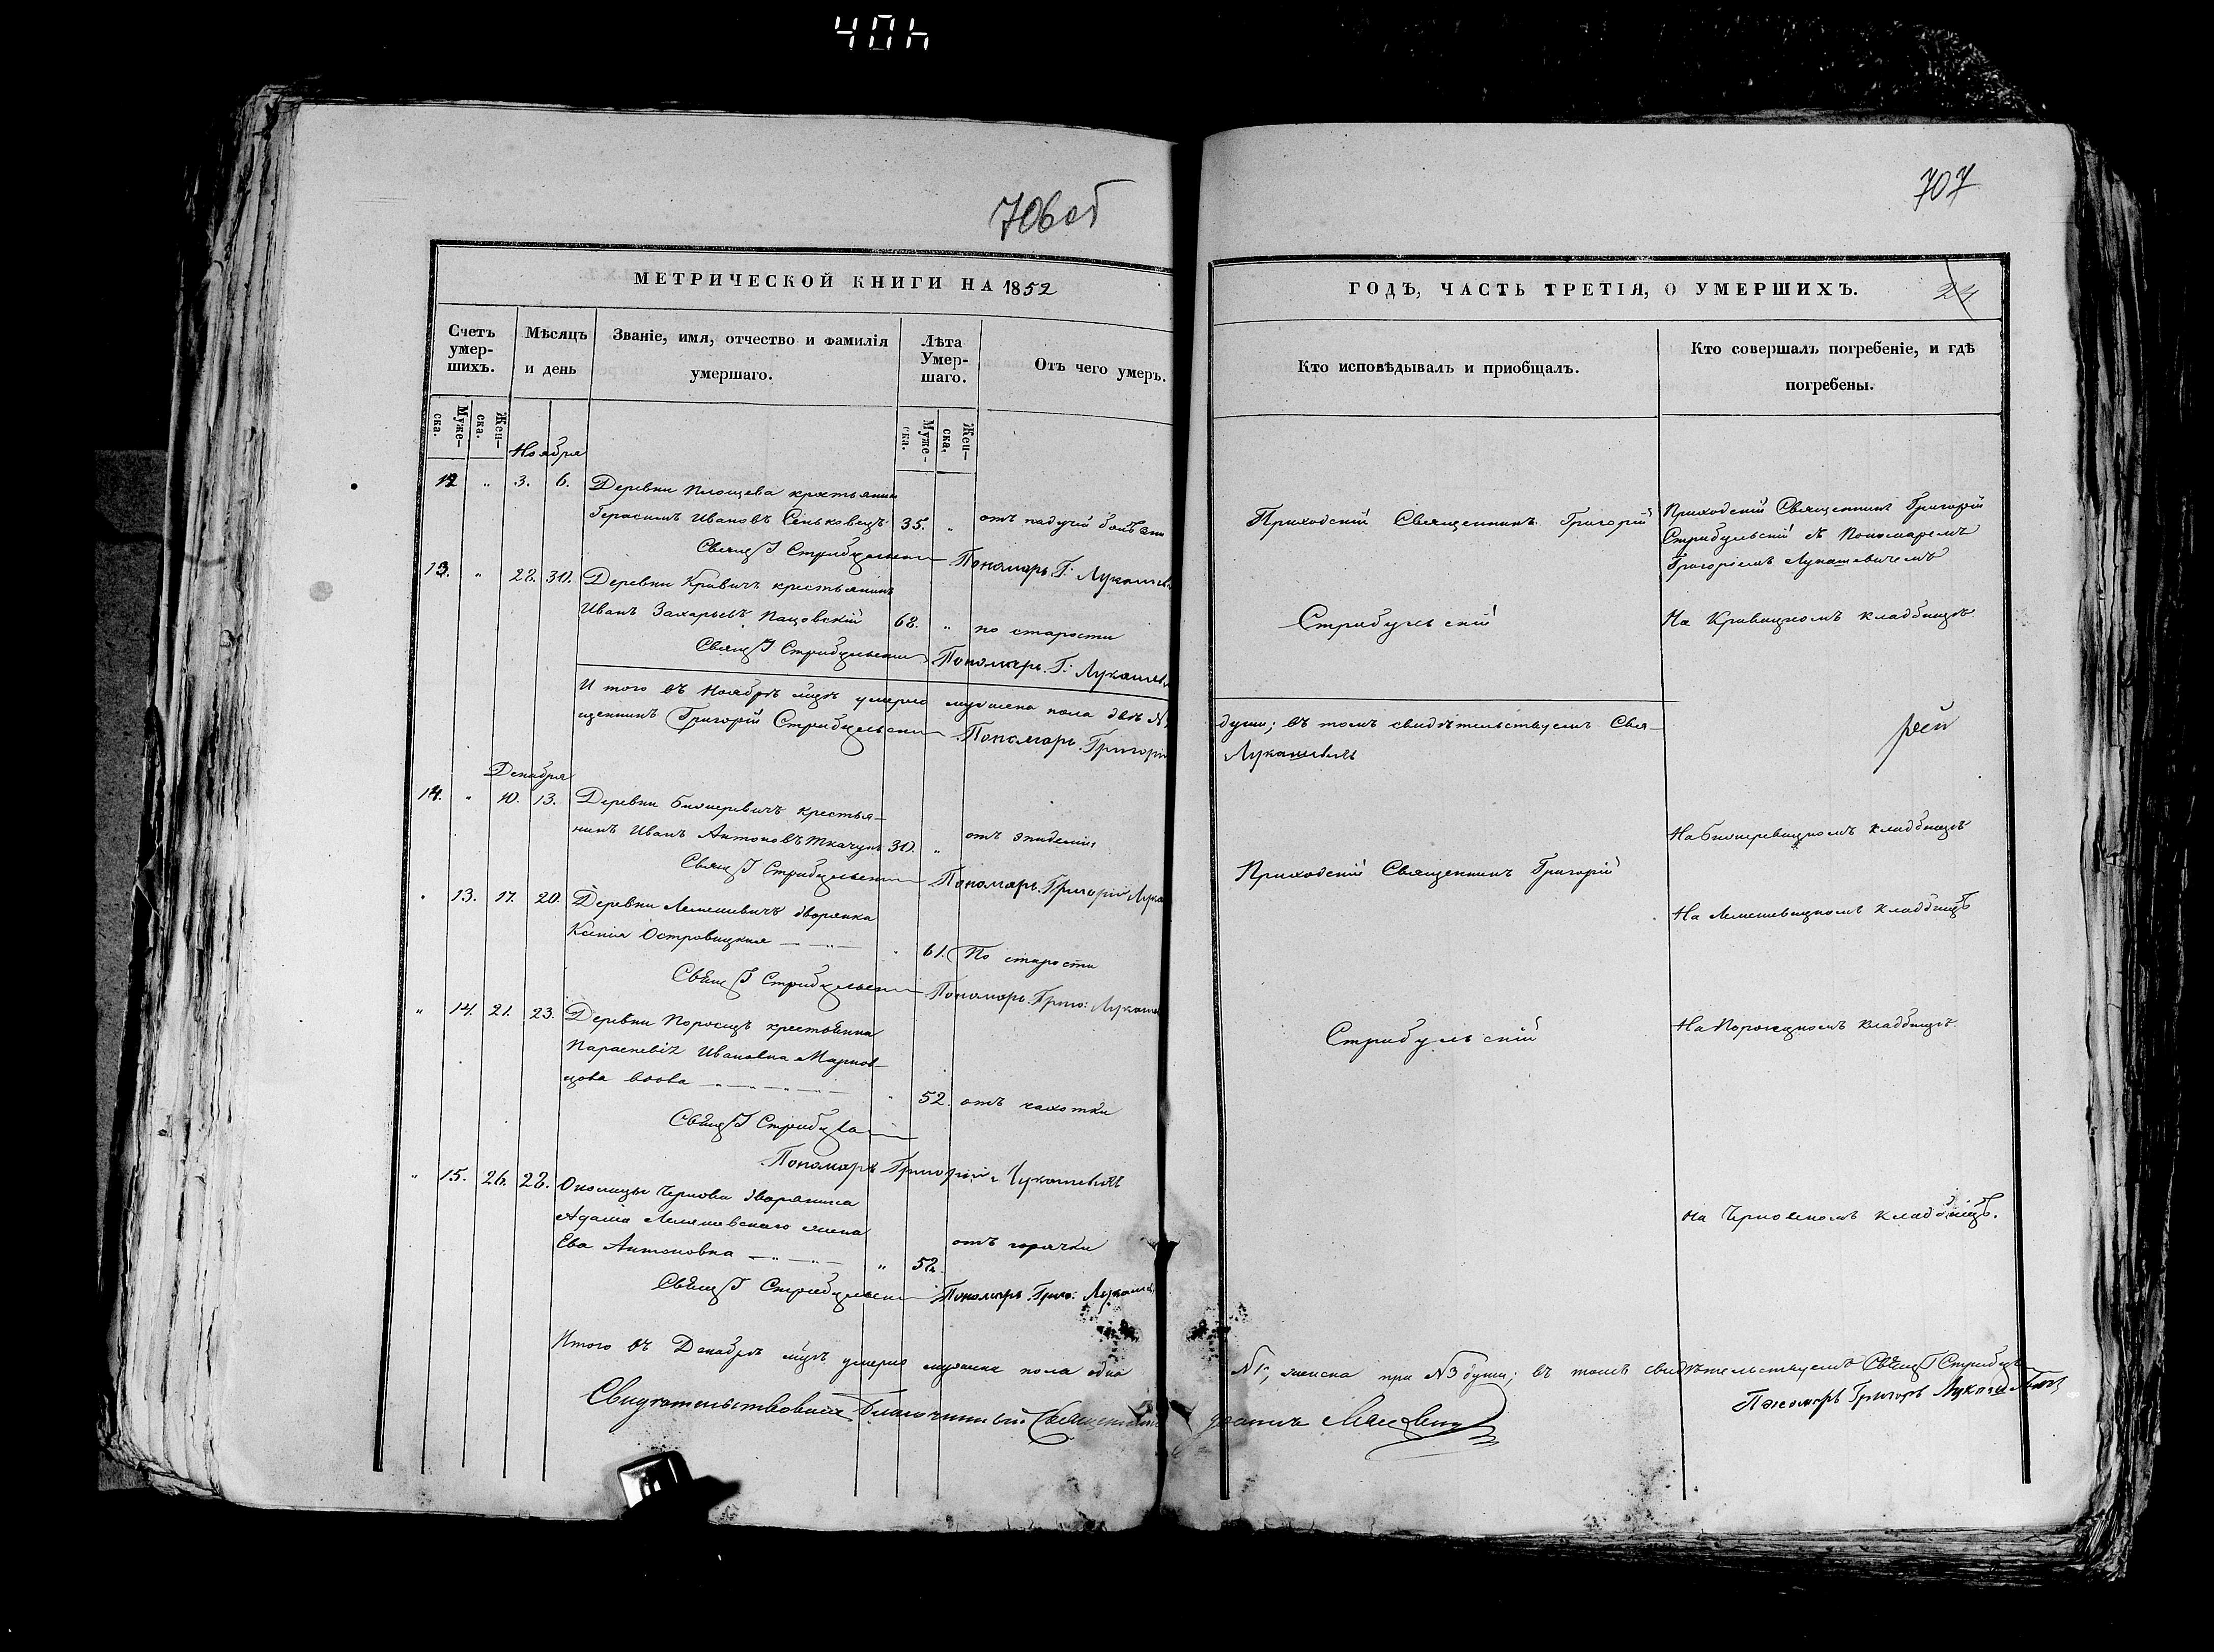 40h
706об
МЕТРИЧЕСКОЙ КНИГИ НА 1852
Счетъ умер- шихъ.
Мѣсяцъ и день
Званіе, имя, отчество и фамилія умершаго.
Лѣта Умер- шаго.
Отъ чего умеръ.
Муже- ска.
Жен- ска.
Муже- ска.
Жен- ска.
Ноября
12 " 3. 6. Деревни Площева крестьянин
Герасимъ Ивановъ Сеньковецъ 35. " отъ падучій болѣзни
Свящ Г Стрибульскій Пономарь Г: Лукашев
13. " 28. 30. Деревни Кривичъ крестьянинъ
Иванъ Захарьевъ Пацовскій 68. " по старости
Свящ Г Стрибульскій Пономарь Г: Лукашев
И того въ Ноябрѣ мцѣ умерло мужеска пола двѣ №
щенникъ Григорій Стрибульскій Пономарь Григорій
Декабря
14. " 10. 13. Деревни крестья-
нинъ Иванъ Антоновъ Ткачукъ 30. " отъ эпидеміи
Свящ Г Стрибульскій Пономарь Григорій Лука
" 13. 17. 20. Деревни Лемешевичъ дворянка
Ксенія Островицкая " 61. По старости
Свящ Г Стрибульскій Пономарь Григо: Лукаше
" 14. 21. 23. Деревни Поросцъ крестьянка
Параскевія Ивановна
вдова " 52. отъ чахотки
Свящ Г Стрибул
Пономарь Григорій Лукашевичъ
" 15. 26. 28. Околицы Чернова дворянина
Адама Лемешевскаго жена
Ева Антоновна " 52. отъ горячки
Свящ Г Стрибульскій Пономарь Григо: Лукашев
Итого въ Декабрѣ мцѣ умерло мужеска пола одна
Свидѣтельствовалъ Благочинный Священникъ
707
ГОДЪ, ЧАСТЬ ТРЕТІЯ, О УМЕРШИХЪ.
24
Кто исповѣдывалъ и приобщалъ.
Кто совершалъ погребеніе, и гдѣ погребены.
Приходскій Священникъ Григорій
Стрибульскій
Приходскій Священникъ Григорій
Стрибульскій съ Пономаремъ
Григоріемъ Лукашевичемъ
На Кривицкомъ кладбищѣ
души; въ томъ свидѣтельствуемъ Свя-
Лукашевичъ
Приходскій Священникъ Григорій
Стрибульскій
кладбищѣ
На Лемешевицкомъ кладбищѣ
На Поросцкомъ кладбищѣ
на Черновскомъ кладбищѣ.
№ 1, женска три № 3 души; въ томъ свидѣтельствуемъ Свящ Г Стрибул
Пономарь Григорь Лукашевичъ
Іоаннъ